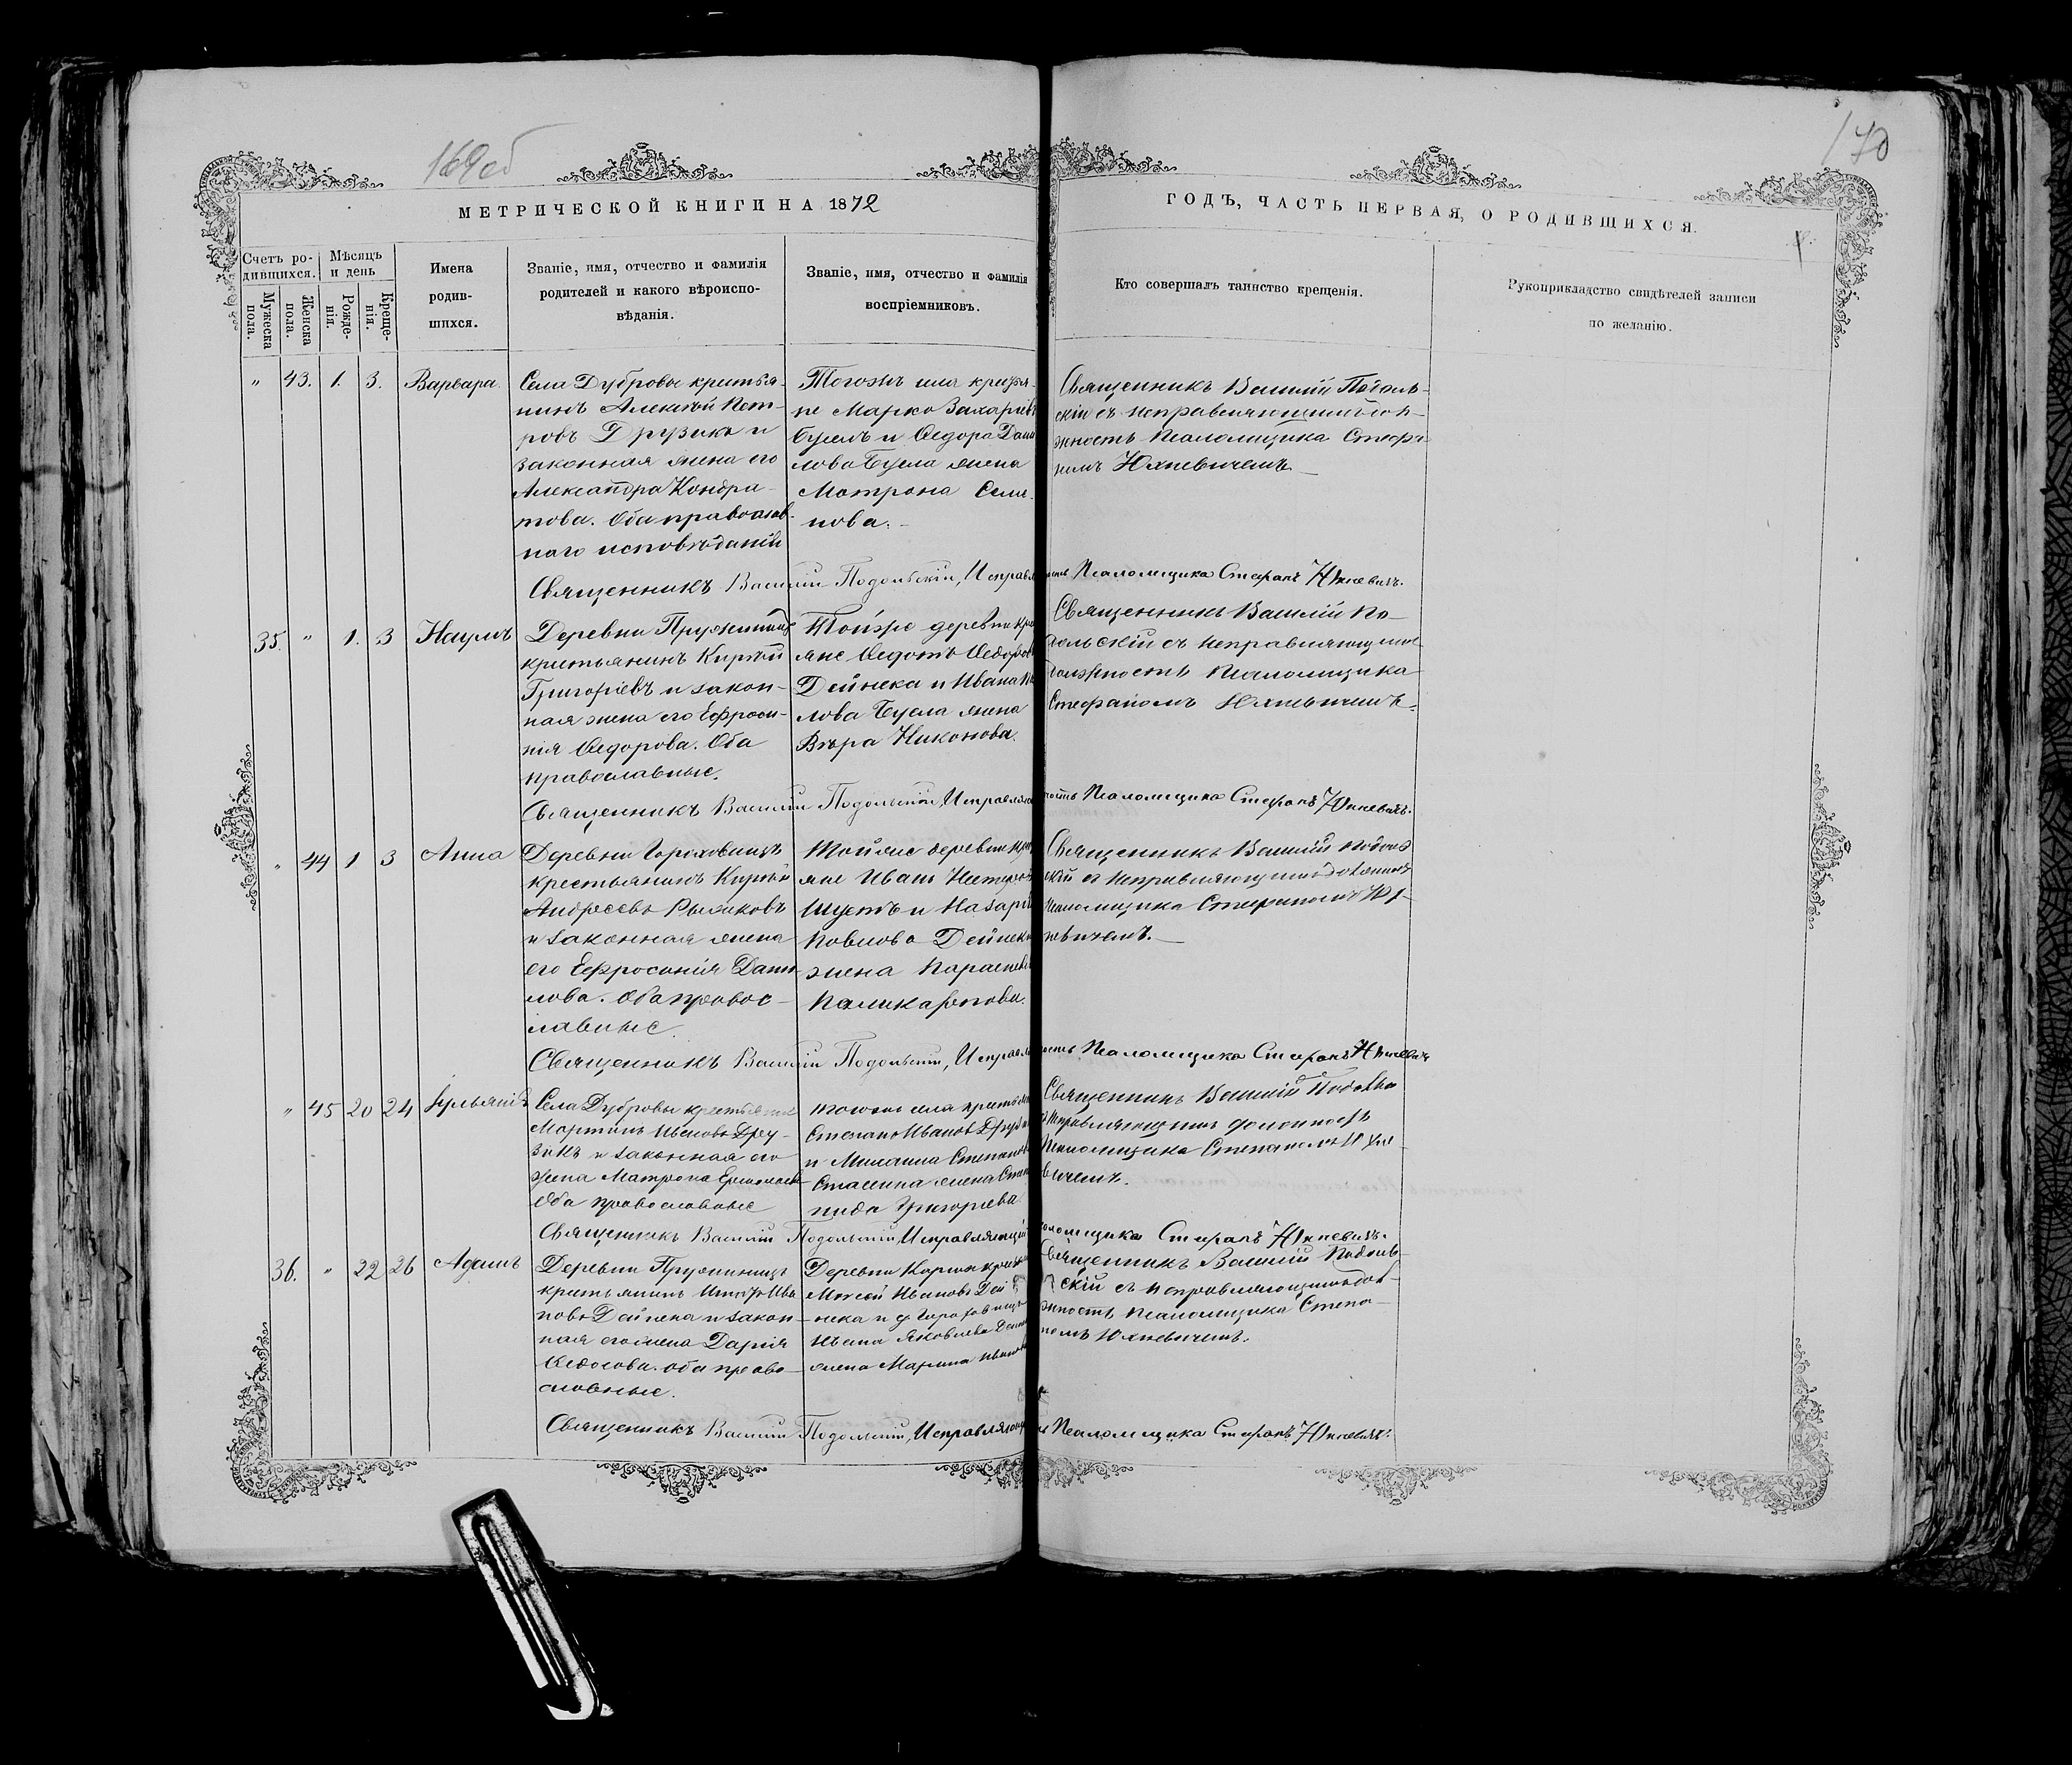 169об
170
МЕТРИЧЕСКОЙ КНИГИ НА 1872
ГОДЪ, ЧАСТЬ ПЕРВАЯ, О РОДИВШИХСЯ.
Счетъ ро-
дившихся.
Мѣсяцъ
и день
Мужеска
пола.
Женска
пола.
Рожде-
нія.
Креще-
нія.
Имена
родив-
шихся.
Званіе, имя, отчество и фамилія
родителей и какого вѣроиспо-
вѣданія.
Званіе, имя, отчество и фамилія
воспріемниковъ.
Кто совершалъ таинство крещенія.
Рукоприкладство свидѣтелей записи
по желанію.
" 43. 1. 3. Варвара.
Села Дубровы крестья-
нинъ Алексѣй Пет-
ровъ Друзикъ и
законная жена его
Александра Кондра-
това. Оба православ-
наго исповѣданія
Тогожъ села крестья-
не Марко Захаріевъ
Буселъ и Ѳедора
лова Бусла жена
Матрона Семе-
нова.
Священникъ Василій Подоль-
скій съ исправляющимъ дол-
жность Псаломщика Стефа-
номъ Юхневичемъ.
Священникъ Василій Подольскій, Псаломщика Стефанъ Юхневичъ.
35. " 1. 3 Наумъ
Деревни
крестьянинъ
Григоріевъ и закон-
ная жена его Ефроси-
нія Ѳедорова. Оба
православные.
Тойже деревни
яне Ѳедотъ Ѳедоровъ
Дейнека и Ивана
лова Бусла жена
Вѣра Никонова.
Священникъ Василій По-
дольскій съ исправляющимъ
должность Псаломщика
Стефаномъ Юхневичемъ.
Священникъ Василій Подольскій, Псаломщика Стефанъ Юхневичъ.
" 44 1 3 Анна
Деревни Гороховищъ
крестьянинъ
Андреевъ Рыжаковъ
и законная жена
его Ефросинія Дани-
лова. Оба правос-
лавные.
Тойже деревни
яне Иванъ
Шустъ и Назарія
Павлова
жена
Поликарпова.
Священникъ Василій Подоль-
скій съ исправляющимъ должность
Псаломщика Стефаномъ Юх-
невичемъ.
Священникъ Василій Подольскій, Псаломщика Стефанъ Юхневичъ
" 45 20 24
Села Дубровы крестьянинъ
Мартинъ Ивановъ Дру-
зикъ и законная его
жена Матрона
Оба православные
тогожъ села
Степанъ Ивановъ
и
жена
Григорьева
Священникъ Василій
исправляющимъ должность
Псаломщика Степаномъ Юхне-
вичемъ.
Священникъ Василій Подольскій, Исправляющій Псаломщика Стефанъ Юхневичъ.
36. " 22 26 Адамъ
Деревни
крестьянинъ Ива-
новъ Дейнека и закон-
ная его жена Дарія
Ѳедосова. Оба право-
славные.
Деревни
Ивановъ Дей-
нека и
Яковлева
жена Марина
Священникъ Василій Подоль-
скій съ исправляющимъ дол-
жность Псаломщика Степа-
номъ Юхневичемъ.
Священникъ Василій Подольскій, Псаломщика Стефанъ Юхневичъ.